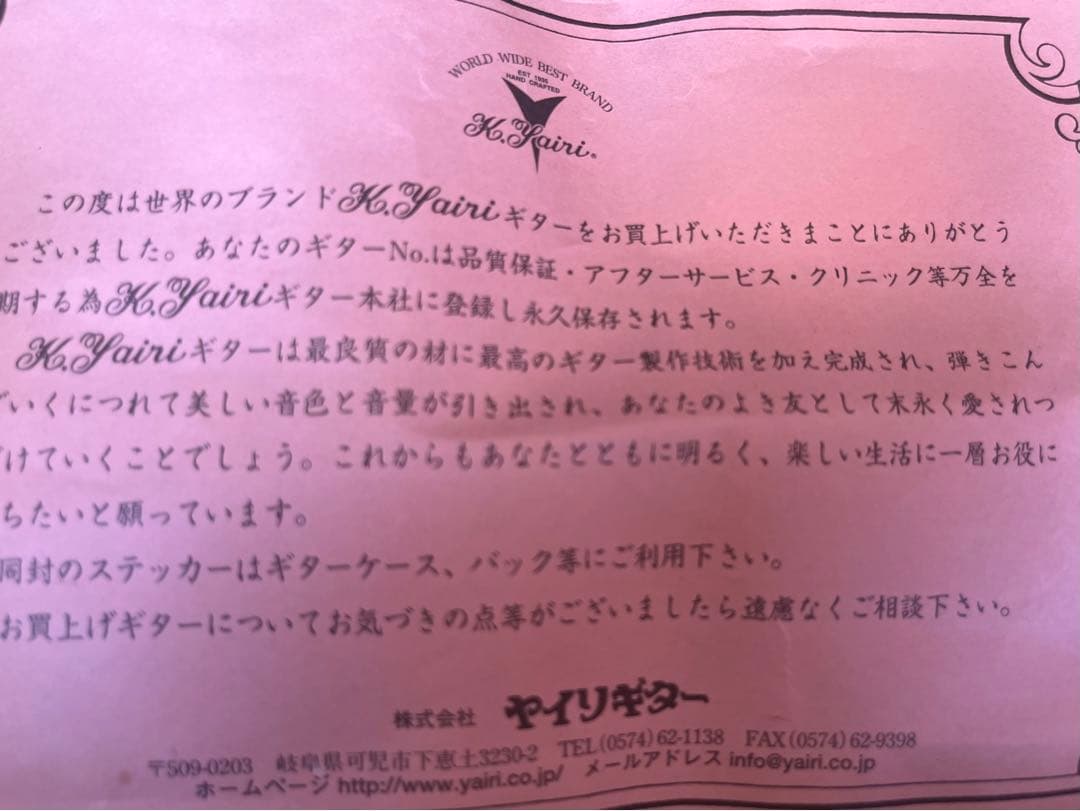 WORLD WIDE BEST BRAND
EST 1935
HAND CRAFTED
K.Yairi®
この度は世界のブランドK.Yairiギターをお買上げいただきまことにありがとう
ございました。あなたのギターNo.は品質保証・アフターサービス・クリニック等万全を
期する為K.Yairiギター本社に登録し永久保存されます。
K.Yairiギターは最良質の材に最高のギター製作技術を加え完成され、弾きこん
でいくにつれて美しい音色と音量が引き出され、あなたのよき友として末永く愛されつ
づけていくことでしょう。これからもあなたとともに明るく、楽しい生活に一層お役に
ちたいと願っています。
同封のステッカーはギターケース、バック等にご利用下さい。
お買上げギターについてお気づきの点等がございましたら遠慮なくご相談下さい。
株式会社 ヤイリギター
〒509-0203 岐阜県可児市下恵土3230-2 TEL(0574)62-1138 FAX(0574)62-9398
ホームページ http://www.yairi.co.jp/ メールアドレス info@yairi.co.jp